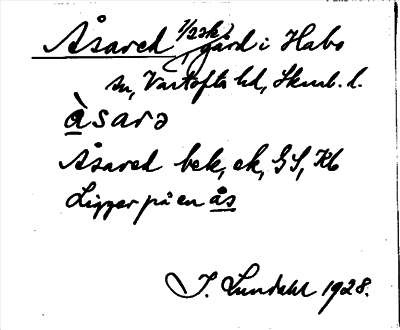 Åsared 1/2 sk, gård i Habo
sn, Vartofta hd, Skarab. l.
àsarə
Åsared bek, ek, GS, Kb
Ligger på en ås
I. Lundahl 1928.